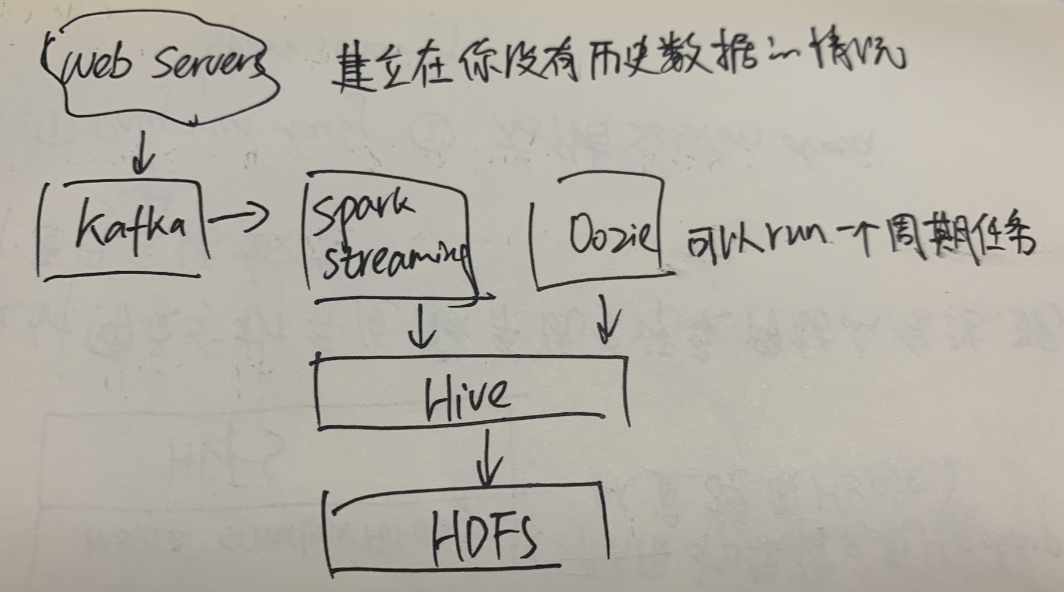 Web Servers
建立在你没有历史数据的情况
Kafka
Spark
streaming
Oozie
可以run一个周期任务
Hive
HDFS